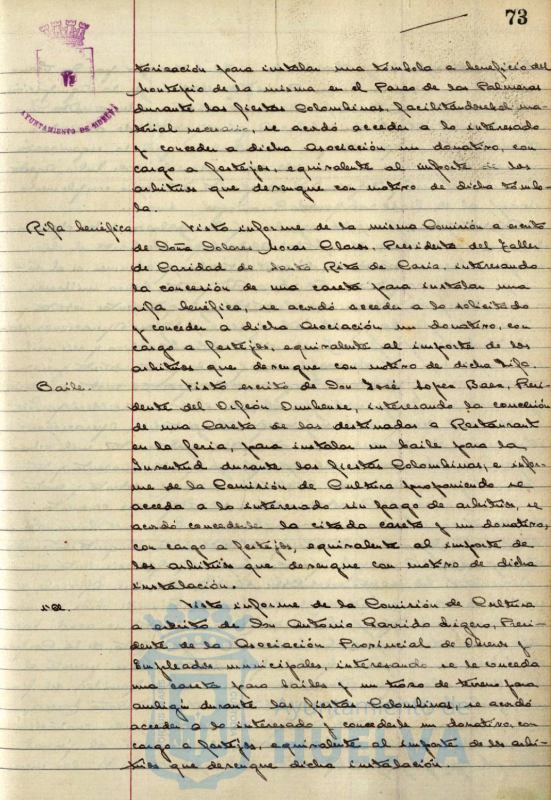 73
AYUNTAMIENTO DE HUELVA
torización para instalar una tómbola a beneficio del
Montepio de la misma en el Paseo de las Palmeras
durante las fiestas Colombinas, facilitándosele ma-
terial necesario, se acordó acceder a lo interesado
y conceder a dicha Asociación un donativo, con
cargo a festejos, equivalente al importe de los
arbitrios que devengue con motivo de dicha tómbo-
la.
Rifa benéfica Visto informe de la misma Comisión a escrito
de Doña Dolores Claros, Presidenta del Taller
de Caridad de Santa Rita de Casia, interesando
la concesión de una caseta para instalar una
rifa benéfica, se acordó acceder a lo solicitado
y conceder a dicha Asociación un donativo, con
cargo a festejos, equivalente al importe de los
arbitrios que devengue con motivo de dicha rifa.
Baile. Visto escrito de Don José Lopez Baez, Presi-
dente del Orfeón Onubense, interesando la concesión
de una Caseta de las destinadas a Restaurant
en la feria, para instalar un baile para la
Juventud durante las fiestas Colombinas, e infor-
me de la Comisión de Cultura proponiendo se
acceda a lo interesado sin pago de arbitrios, se
acordó concederle la citada caseta y un donativo,
con cargo a festejos, equivalente al importe de
los arbitrios que devengue con motivo de dicha
instalación.
Visto informe de la Comisión de Cultura
a escrito de Don Antonio Garrido Ligero, Presi-
dente de la Asociación Provincial de Obreros y
Empleados municipales, interesando se le conceda
una caseta para bailes y un trozo de terreno para
ambigú durante las fiestas Colombinas, se acordó
acceder a lo interesado y concederle un donativo, con
cargo a festejos, equivalente al importe de los arbi-
trios que devengue dicha instalación.
HUELVA